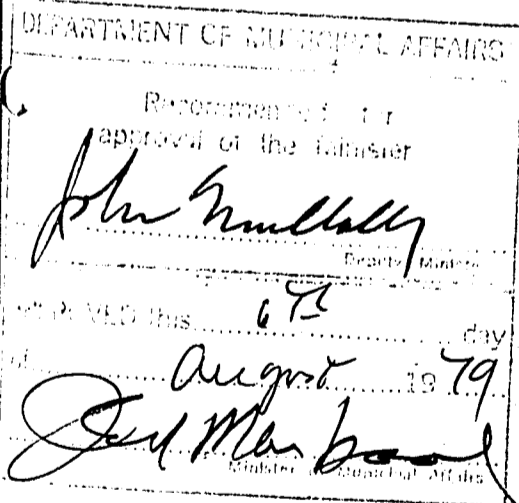 DEPARTMENT OF MUNICIPAL AFFAIRS
Recommended for
approval of the Minister
John Mullally
Deputy Minister
APPROVED this 6Th day
of August 1979
Minister of Municipal Affairs